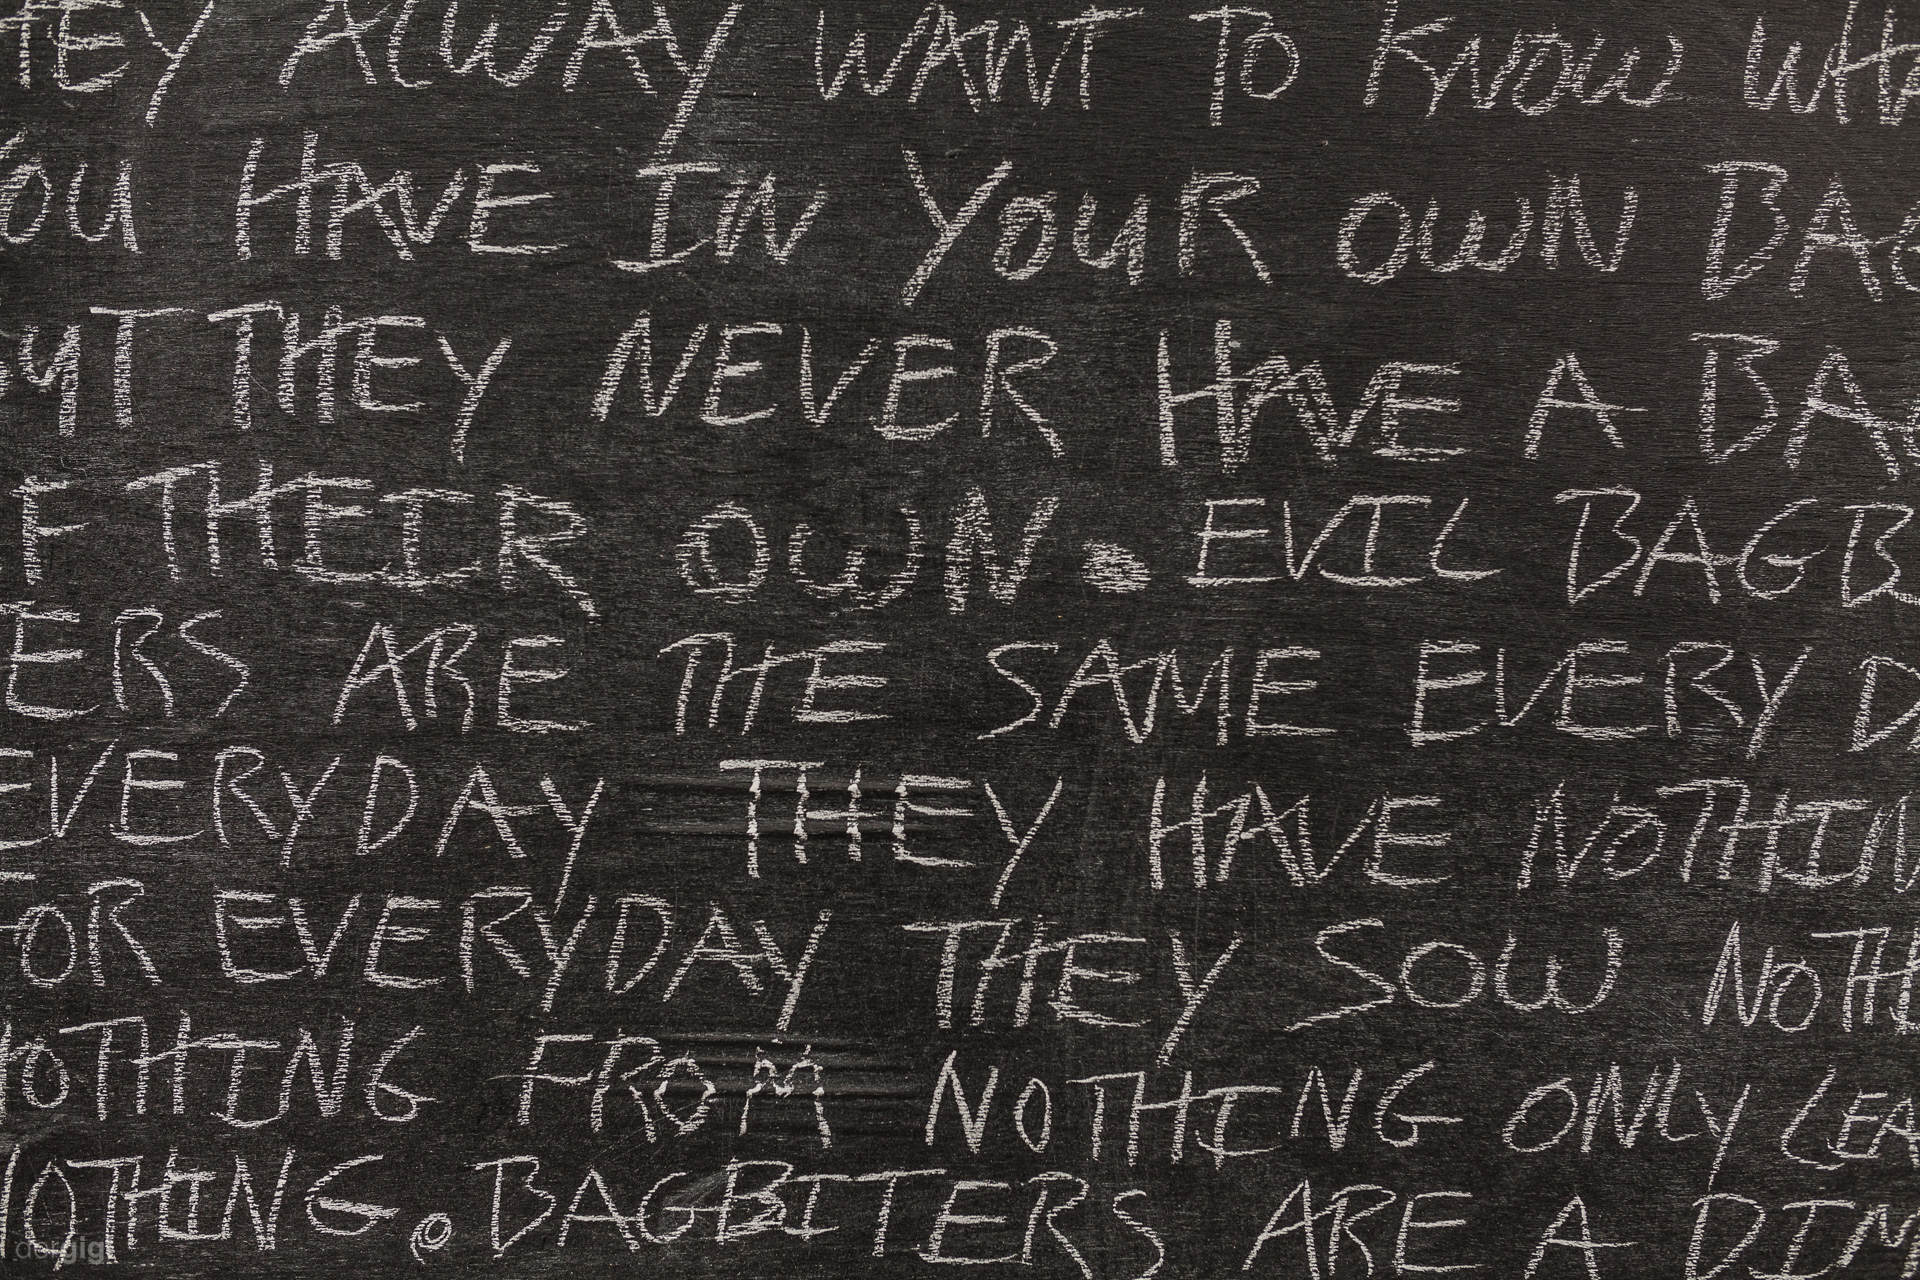 HEY ALWAY WANT TO KNOW WHA
OU HAVE IN YOUR OWN BAG
UT THEY NEVER HAVE A BAG
F THEIR OWN. EVIL BAGB
ERS ARE THE SAME EVERY DA
EVERYDAY THEY HAVE NOTHIN
FOR EVERYDAY THEY SOW NOTHI
NOTHING FROM NOTHING ONLY LEA
NOTHING. BAGBITERS ARE A DIM
dergigi